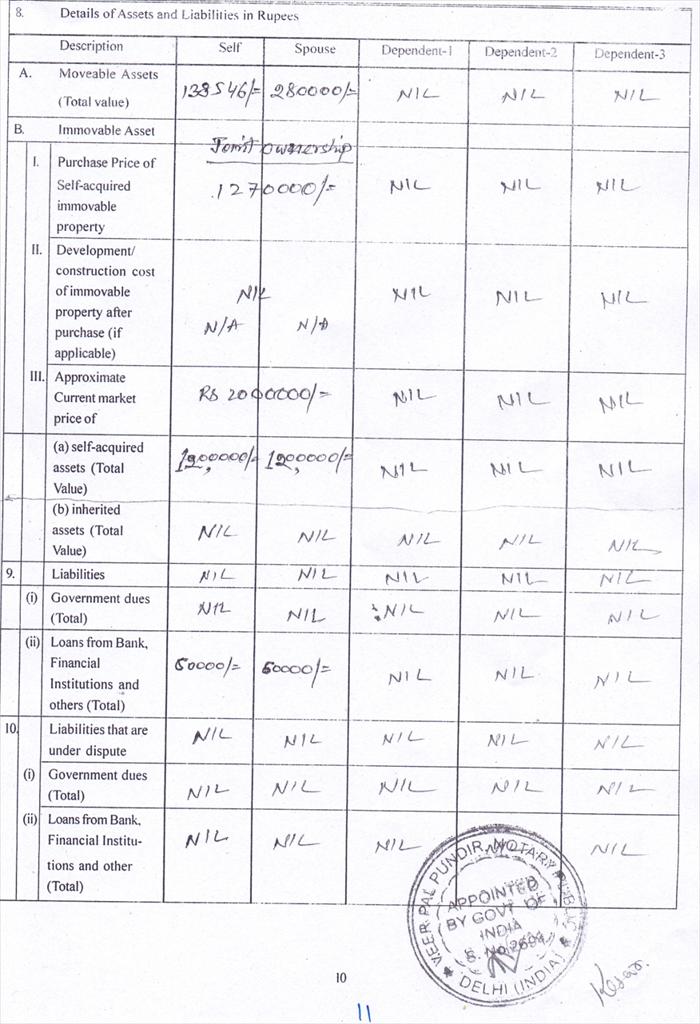 8. Details of Assets and Liabilities in Rupees
Description Self Spouse Dependent-1 Dependent-2 Dependent-3
A. Moveable Assets
(Total value) 138546/= 280000/= NIL NIL NIL
B. Immovable Asset
Joint ownership
I. Purchase Price of
Self-acquired 1270000/= NIL NIL NIL
immovable
property
II. Development/
construction cost
of immovable NIL NIL NIL NIL
property after
purchase (if N/A N/A
applicable)
III. Approximate
Current market RS 2000000/= NIL NIL NIL
price of
(a) self-acquired
assets (Total NIL NIL NIL
Value)
(b) inherited
assets (Total NIL NIL NIL NIL NIL
Value)
9. Liabilities NIL NIL NIL NIL NIL
(i) Government dues
(Total) NIL NIL NIL NIL NIL
(ii) Loans from Bank,
Financial 50000/= 50000/= NIL NIL NIL
Institutions and
others (Total)
10. Liabilities that are
under dispute NIL NIL NIL NIL NIL
(i) Government dues
(Total) NIL NIL NIL NIL NIL
(ii) Loans from Bank,
Financial Institu- NIL NIL NIL NIL NIL
tions and other
(Total)
VEER PAL PUNDIR, NOTARY PUBLIC
APPOINTED
BY GOVT OF
INDIA
DELHI (INDIA)
10
11